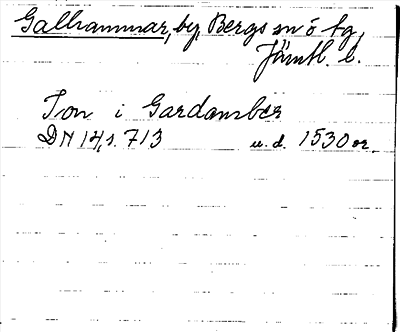 Galhammar, by, Bergs sn ö tg,
Jämtl. l.
Ton i Gardamber
DN 14, s. 713 u. d. 1530 or.